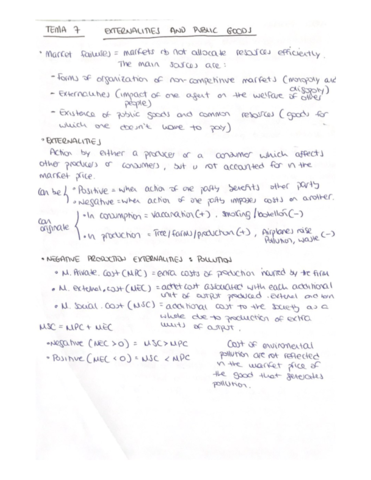 TEMA 7 EXTERNALITIES AND PUBLIC GOODS
• Market failures = markets do not allocate resources efficiently.
The main sources are:
- Forms of organization of non-competitive markets (monopoly and
oligopoly)
- Externalities (impact of one agent on the welfare of other
people)
- Existence of public goods and common resources (goods for
which one doesn't have to pay)
• EXTERNALITIES
Action by either a producer or a consumer which affects
other producers or consumers, but is not accounted for in the
market price.
can be • Positive = when action of one party benefits other party
• Negative = when action of one party imposes costs on another.
can originate • In consumption = Vaccination (+), Smoking/botellon (-)
• In production = Tree/farms/production (+), Airplanes noise
Pollution, waste (-)
• NEGATIVE PRODUCTION EXTERNALITIES: POLLUTION
• M. Private. Cost (MPC) = extra costs of production incurred by the firm
• M. External. cost (MEC) = added cost associated with each additional
unit of output produced.
• M. Social. Cost (MSC) = additional cost to the society as a
whole due to production of extra
units of output.
MSC = MPC + MEC
• Negative (MEC > 0) = MSC > MPC
• Positive (MEC < 0) = MSC < MPC
Cost of environmental
pollution are not reflected
in the market price of
the good that generates
pollution.